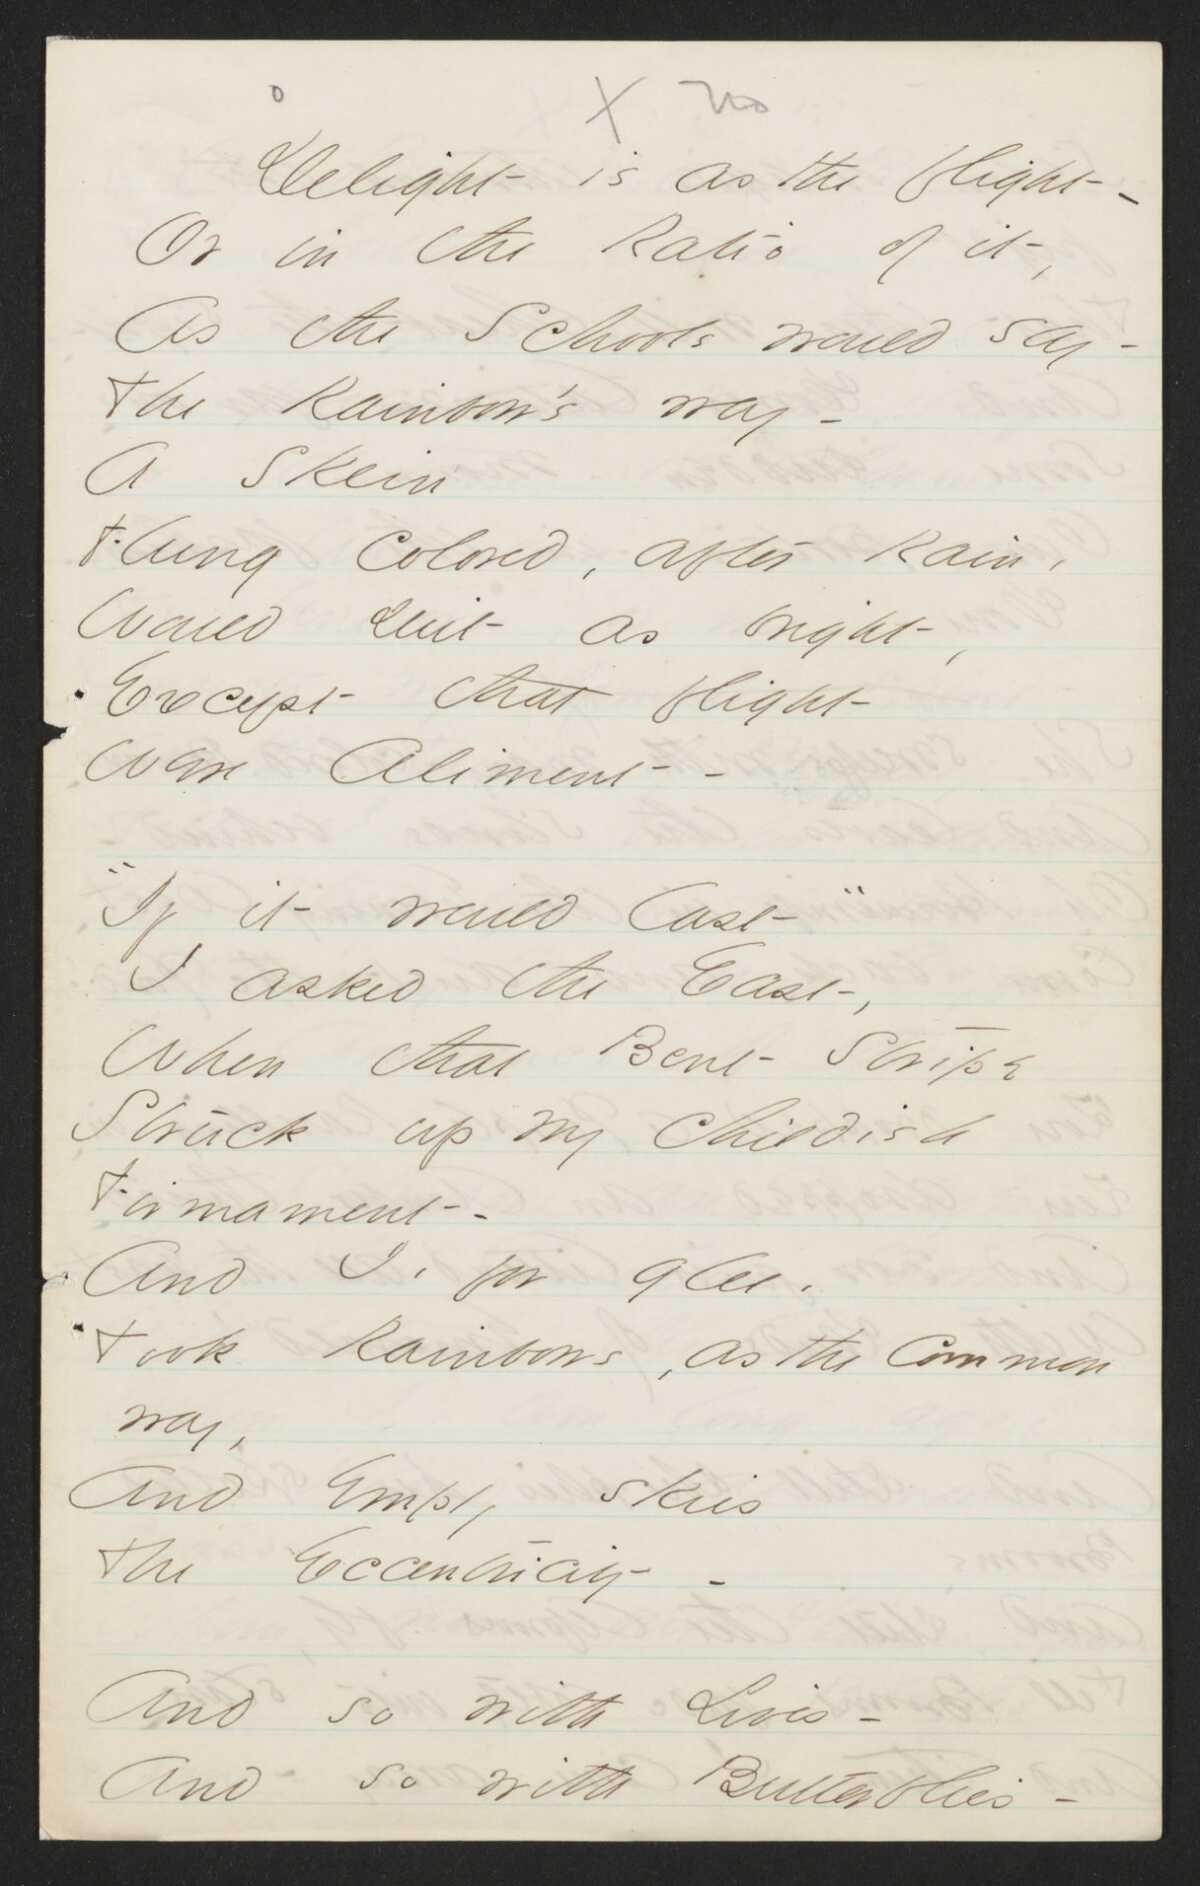 x no
Delight is as the flight -
Or in the Ratio of it,
As the Schools would say -
The Rainbow's way -
A Skein
Flung colored, after Rain,
Would suit as bright,
Except that flight
Were Aliment -
"If it would last"
I asked the East,
When that Bent Stripe
Struck up my childish
Firmament -
And I, for glee,
Took Rainbows, as the common
way,
And Empty skies
The Eccentricity -
And so with Lives -
And so with Butterflies -